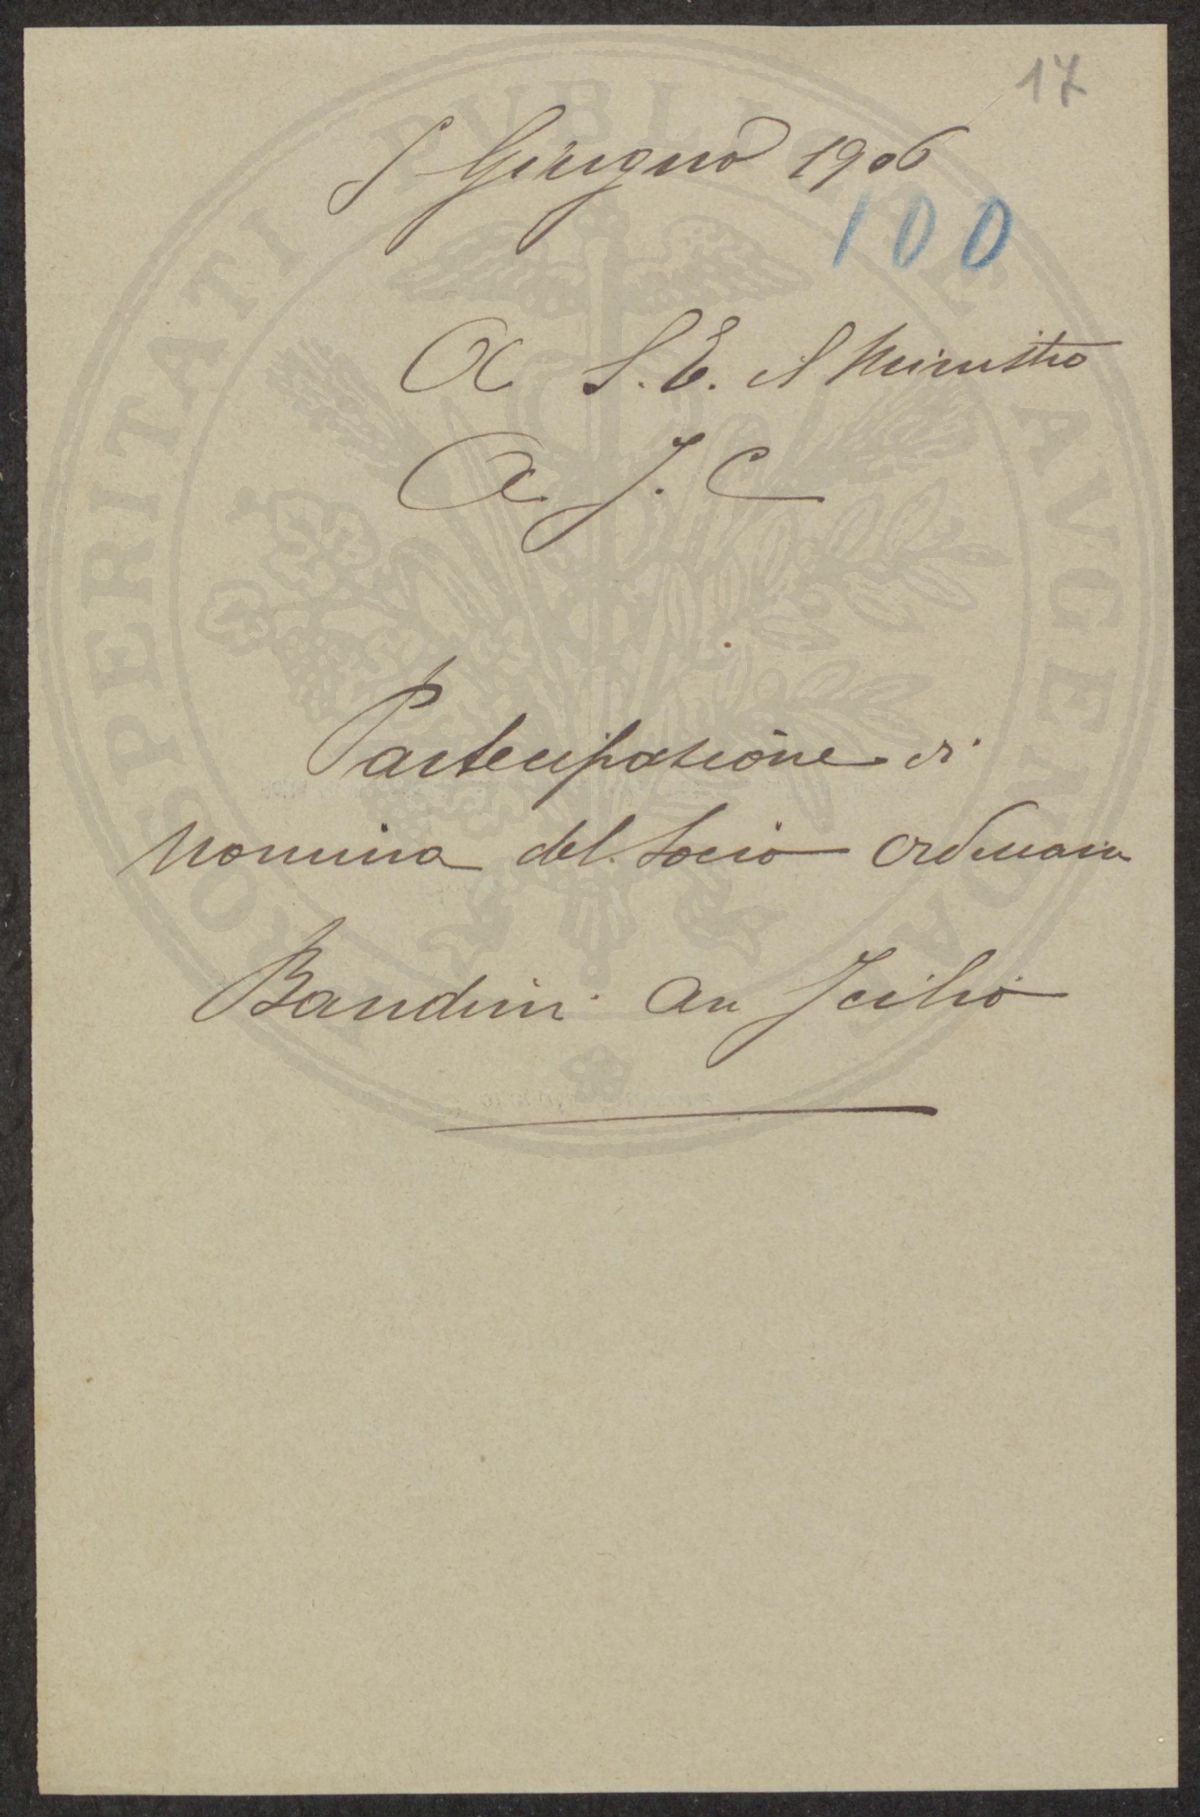 17
5 Giugno 1906
100
A S. E. il Ministro
A. I. C
Partecipazione di
nomina del Socio Ordinario
Bandini Av Icilio
PROSPERITATI PVBLICAE AVGENDAE